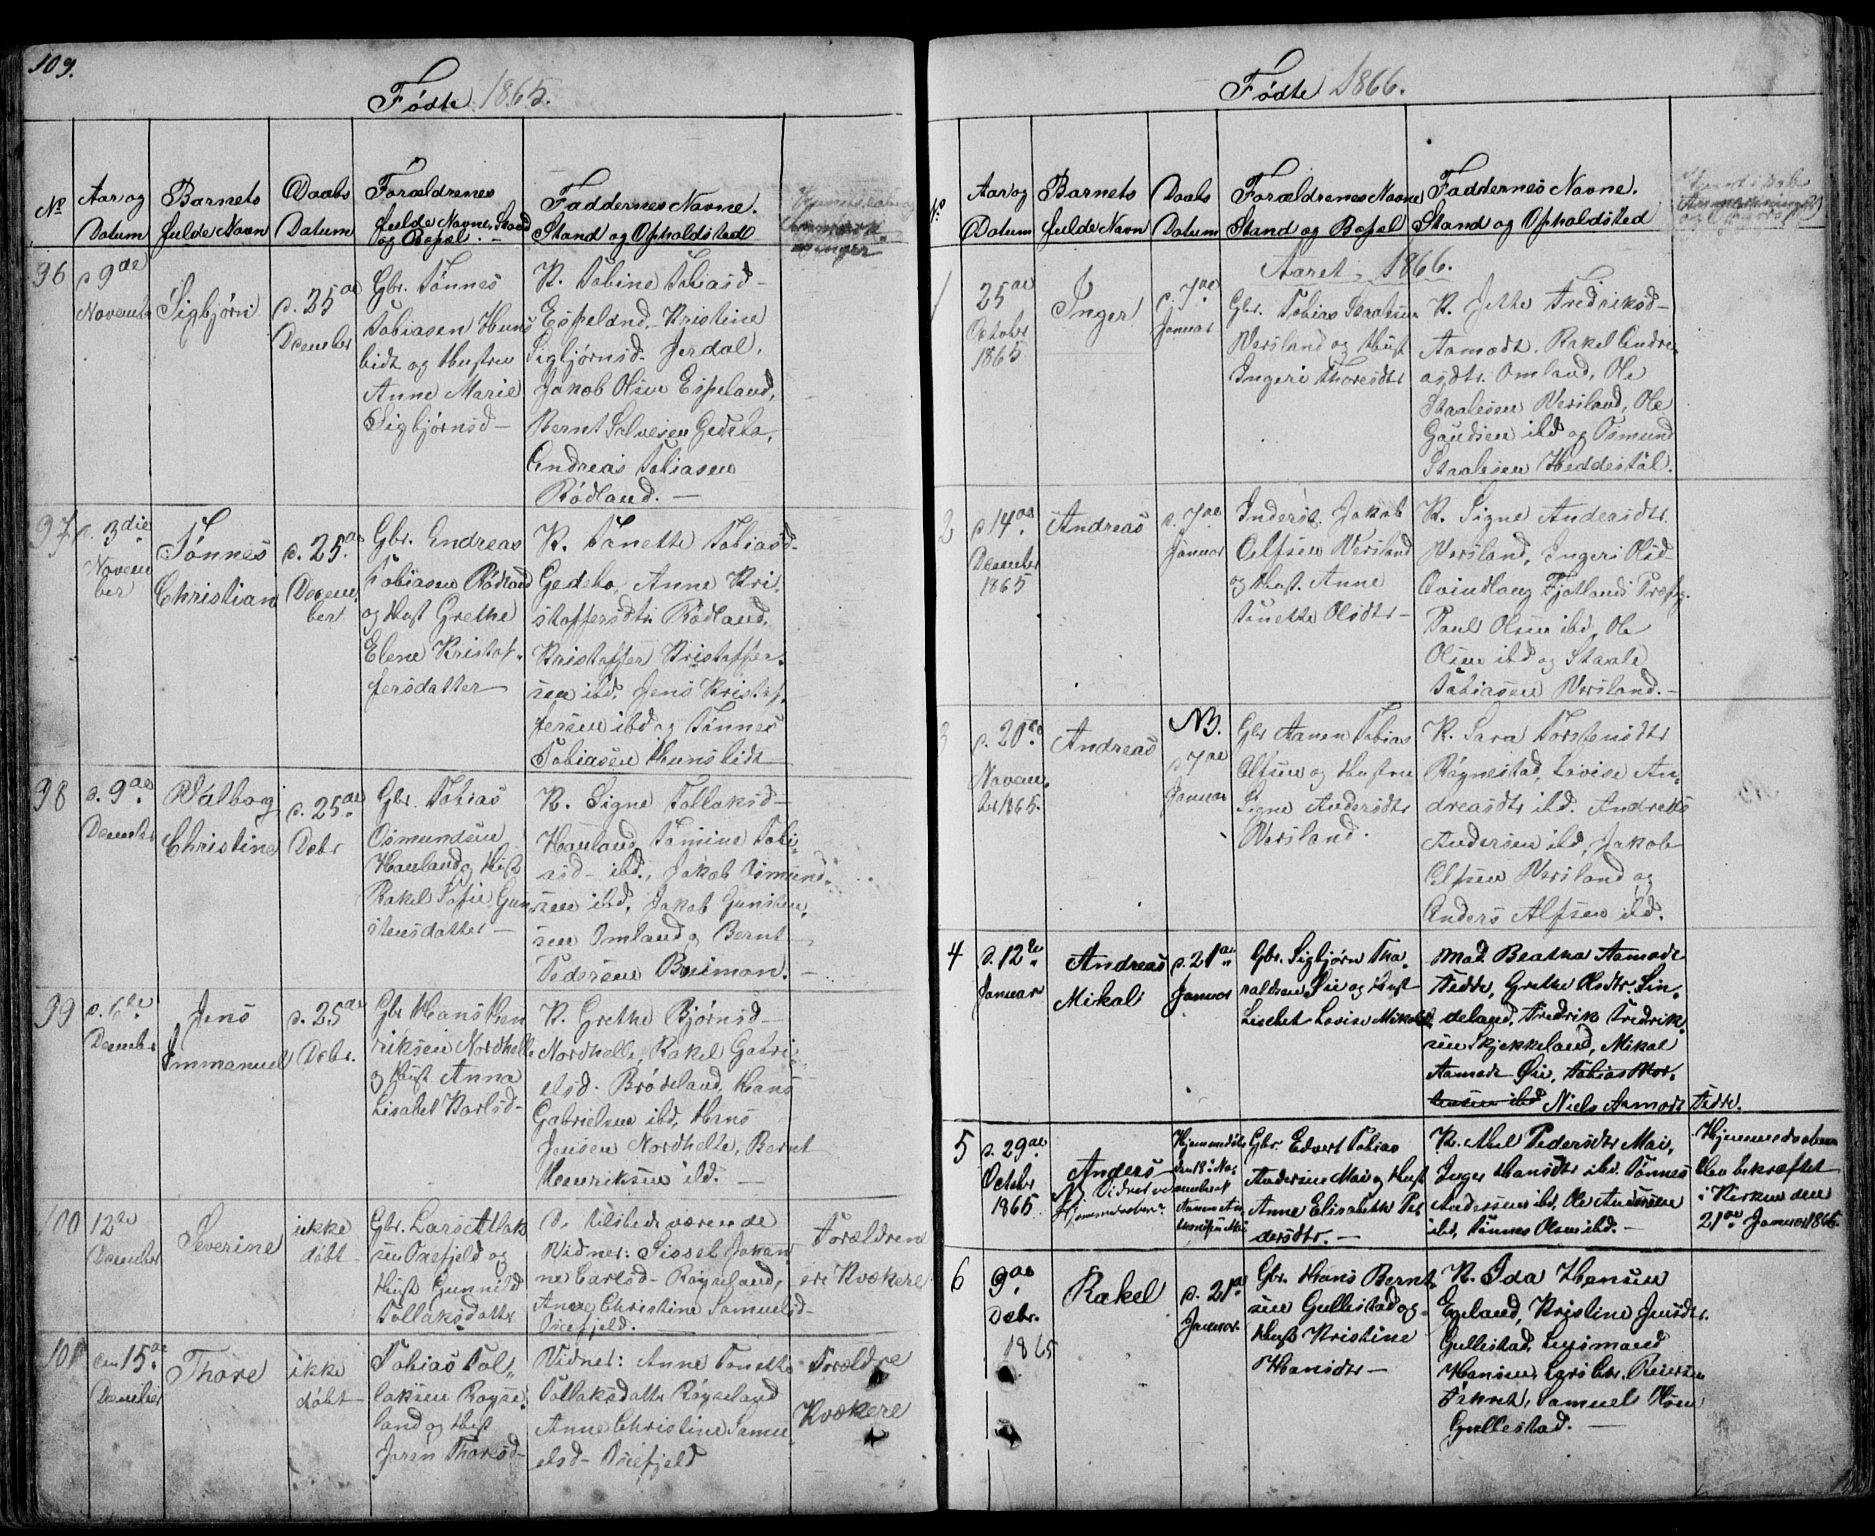 109.
Fødte 1865.
No
Aar og Datum
Barnets fulde Navn
Daabs Datum
Forældrenes fulde Navne, Stand og Bopæl.
Faddernes Navne. Stand og Opholdsted
96
d. 9de November
Sigbjørn
d. 25de December
Gbr. Tønnes
Tobiasen Huns
bidt og Hustru
Anne Marie
Sigbjørnsd-
K. Tobine Tobiasd-
Espeland, Kristine
Sigbjørnsd. Jerdal,
Jakob Olsen Espeland,
Bernt Salvesen Gedebo,
Andreas Tobiasen
Rødland. -
97
d. 3die November
Tønnes
Christian
d. 25de December
Gbr. Endreas
Tobiasen Rødland
og Hust Grethe
Elene Kristof-
fersdatter
K. Tanette Tobiasd-
Gedebo, Anne Kri-
stoffersdtr Rødland,
Kristoffer Kristoffer-
sen ibd, Jens Kristof-
fersen ibd og Tønnes
Tobiasen Hunsbidt
98
d. 9de December
Valborg
Christine
d. 25de Debr
Gbr. Tobias
Osmundsen
Hauland og Hust
Rakel Sofie Gun
stensdatter -
K. Signe Tollaksd-
Hauland, Tomine Tobi-
asd- ibd., Jakob Osmund-
sen ibd, Jakob Gunsten-
sen Omland og Bernt
Pedersen Buimon. -
99
d. 6te December
Jens
Immanuel
d. 25de Debr.
Gbr Hans Hen
riksen Nordhelle
og Hust Anna
Lisabet Karlsd-
K. Grethe Bjørnsd-
Nordhelle, Rakel Gabri-
elsd- Brødeland, Hans
Gabrielsen ibd, Hans
Jensen Nordhelle, Bernt
Henriksen ibd. -
100
12te December
Severine
ikke
døbt
Gbr. Lars Atlak
sen Osefjeld og
Hust Gunnild
Tollaksdatter
D. tilstedeværende
Vidner: Sissel Johan
ne Carlsd- Røyseland,
Anne Christine Samuelsd-
Osefjeld.
Forældrene
ere Kvækere
101
den 15de December
Thore
ikke
døbt
Tobias Tol-
laksen Røyse-
land og Hust
Joren Thoresd-
Vidner: Anne Tonette
Tollaksdatter Røyseland
Anne Christine Samu-
elsd- Osefjeld
Forældre
Kvækere
Fødte 1866.
No
Aar og Datum
Barnets fulde Navn
Daabs Datum
Forældrenes Navne Stand og Bopæl
Faddernes Navne. Stand og Opholdsted
Aaret 1866.
1
25de October 1865
Inger
d. 7de Januar
Gbr. Tobias Staalesen
Versland og Hust
Ingeri Thoresdtr
K. Jette Fredriksd-
Aamodt, Rakel Andre
asdtr. Omland, Ole
Staalesen Versland, Ole
Gaudsen ibd og Osmund
Staalesen Heddestøl.
2
d. 14de December 1865
Andreas
d. 7de Januar
Inderst. Jakob
Olfsen Versland
og Hust. Anne
Tanette Olsdtr-
K. Signe Andeasdtr
Versland, Ingeri Olsd
Qvindlaug Fjotlands Præstg.
Paul Olsen ibd, Ole
Olsen ibd og Staale
Tobiasen Versland. -
3
d. 20de November 1865.
Andreas
NB.
d. 7de Januar
Gbr Aanen Tobias
Olfsen og Hustru
Signe Andersdtr
Versland.
K. Sara Torstensdtr
Røgnestad, Lovise An-
dreasdtr ibd. Andreas
Andersen ibd, Jakob
Olfsen Versland og
Anders Alfsen ibd.
4
d. 12te Januar
Andreas
Mikal
d. 21de Januar
Gbr. Sigbjørn Tho-
raldsen Øie og Hust
Lisebet Lovise Mikals
Mad. Beatha Aamodt
Fedde, Grethe Olsdtr. Lin-
deland, Fredrik Fredrik-
sen Skjekkeland, Mikal
Aamodt Øie, Tobias Mor-
tensen ibd Niels Aamodt Fedde.
5
d. 29de October 1865
Anders
Hjemmedøbt
den 18 No-
Gbr. Edvert Tobias
Andersen Moi og Hust
Anne Elisabeth Pe
dersdtr. -
K. Abel Pedersdtr Moi,
Inger Hansdtr ibd. Tønnes
Andersen ibd, Ole Andersen
ibd, Tønnes Olsen ibd. -
Hjemmedaaben
blev bekræftet
i Kirken den
21de Januar 1866.
6
9de Debr. 1865
Rakel
d. 21de Januar.
Gbr. Hans Bernt
sen Gullestad og
Hust Kristine
Hansdtr -
K. Ida Hansen
Egeland, Kristine Jensdtr.
Gullestad, Lysmand
Hansen, Lars Chr. Reiersen
Samuel Olsen
Gullestad. -